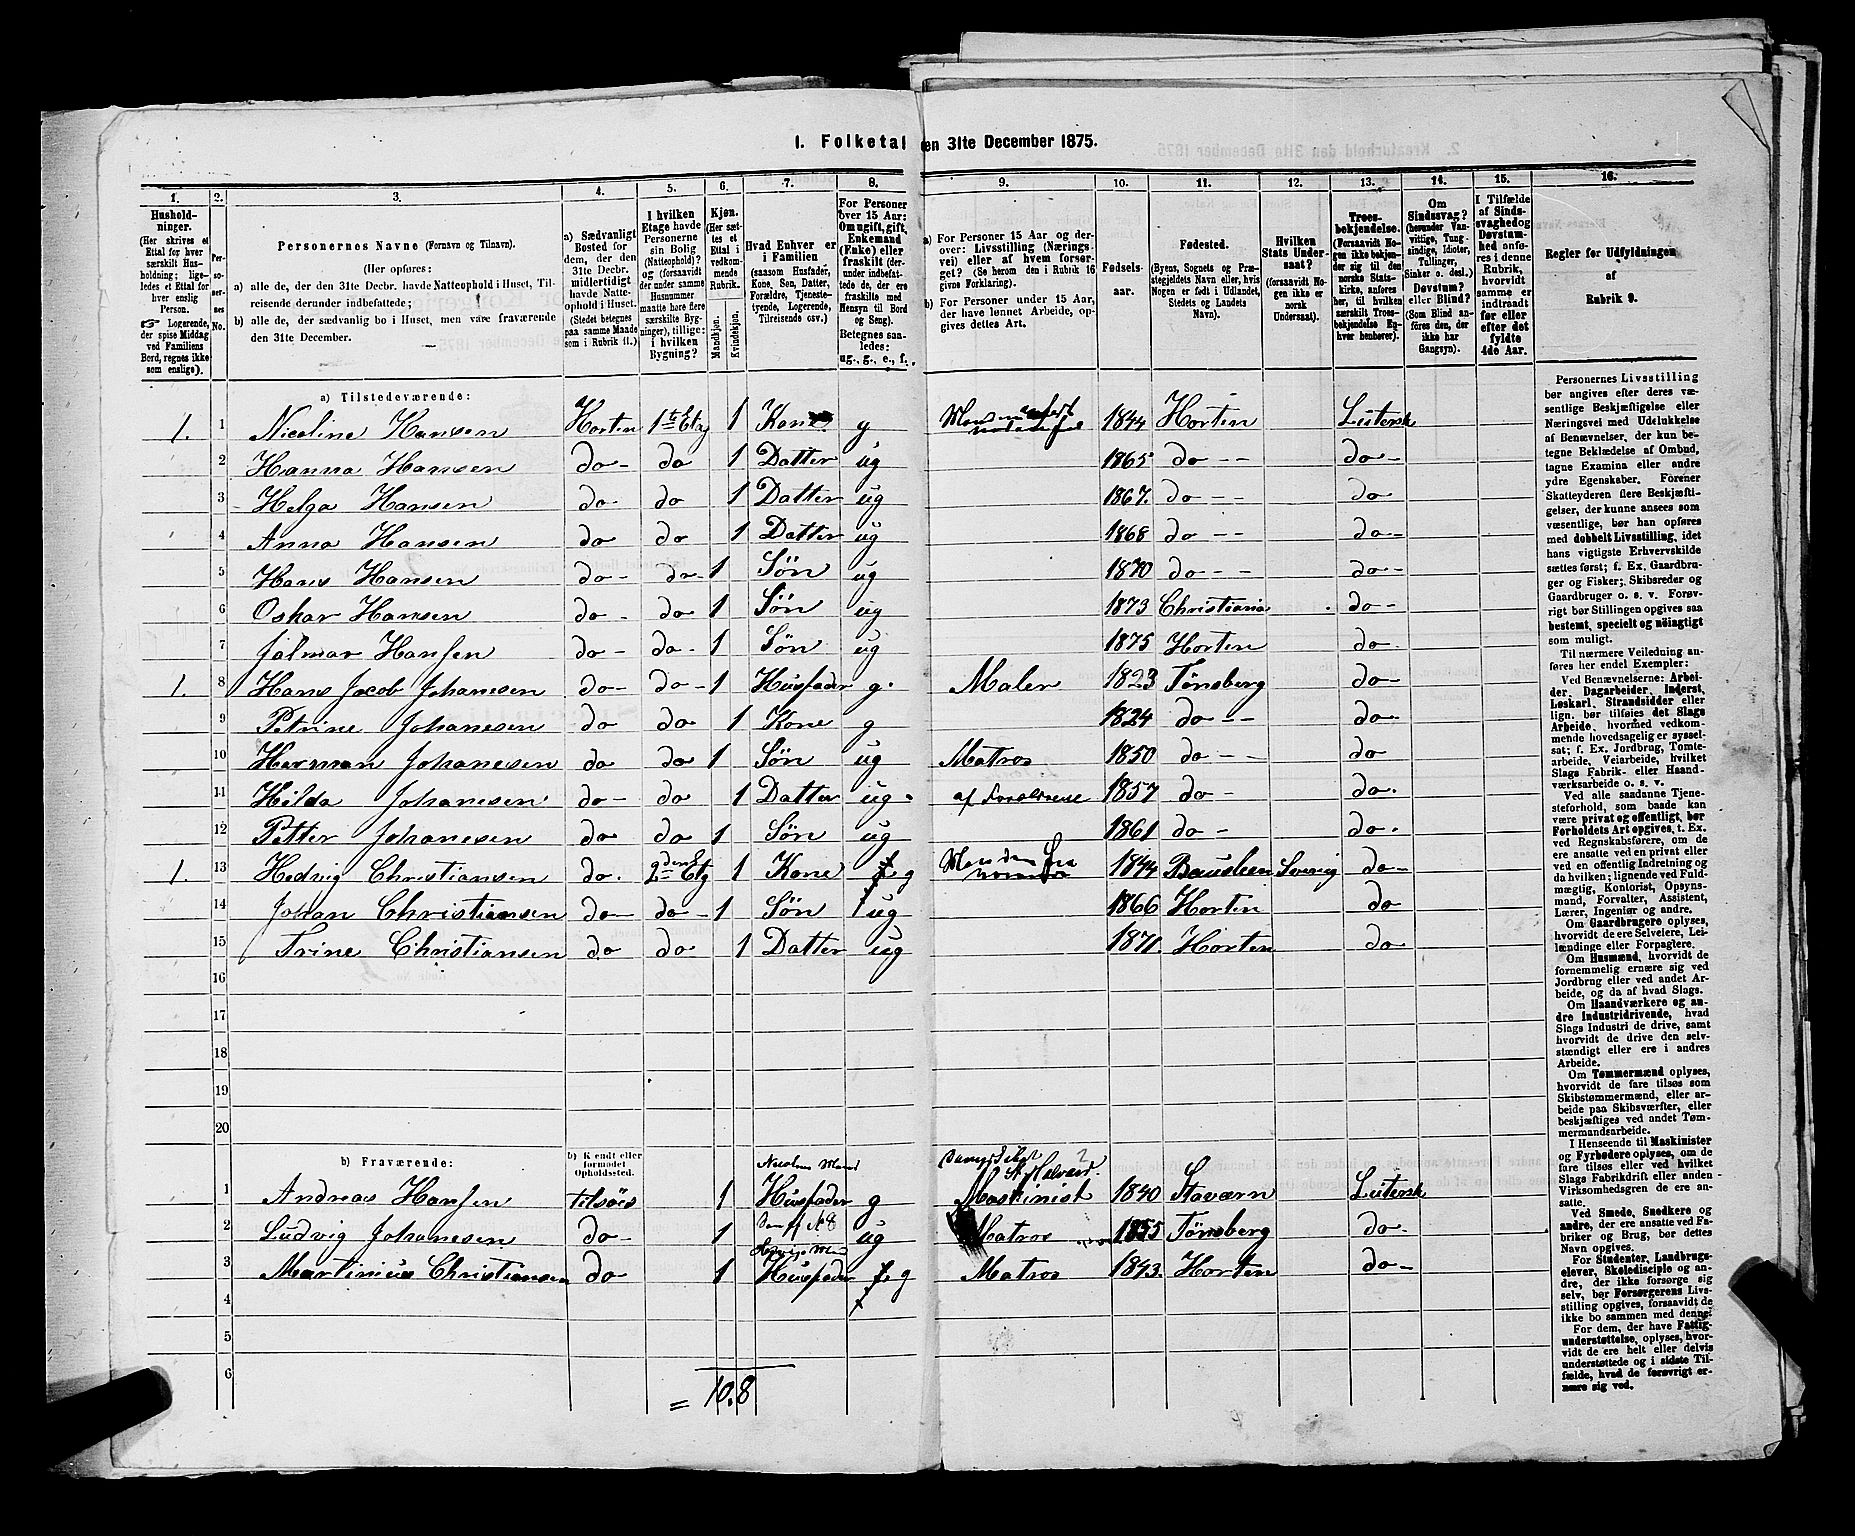 1. Folketal den 31te December 1875.
1. 2. 3. 4. 5. 6. 7. 8. 9. 10. 11. 12. 13. 14. 15. 16.
Hushold-
ninger.
(Her skrives et
Ettal for hver
særskilt Hus-
holdning; lige-
ledes et Ettal for
hver enslig
Person.
☞ Logerende,
der spise Middag
ved Familiens
Bord, regnes ikke
som enslige).
Per-
so-
ner-
nes
No.
Personernes Navne (Fornavn og Tilnavn).
(Her opføres:
a) alle de, der den 31te Decbr. havde Natteophold i Huset, Til-
reisende derunder indbefattede;
b) alle de, der sædvanlig bo i Huset, men vare fraværende
den 31te December.
a) Sædvanligt
Bosted for
dem, der den
31te Decbr.
midlertidigt
havde Natte-
ophold i Huset.
(Stedet betegnes
paa samme Maade
som i Rubrik 11.)
I hvilken
Etage havde
Personerne
sin Bolig
(Natteophold)?
og (forsaavidt
der under samme
Husnummer
maatte høre flere
særskilte Byg-
ninger), tillige:
i hvilken
Bygning?
Kjøn.
(Her sæt-
tes et
Ettal i
vedkom-
mende
Rubrik.)
Mandkjøn.
Kvindekjøn.
Hvad Enhver er
i Familien
(saasom Husfader,
Kone, Søn, Datter,
Forældre, Tjeneste-
tyende, Logerende,
Tilreisende osv.)
For Personer
over 15 Aar:
Om ugift, gift,
Enkemand
(Enke) eller
fraskilt (der-
under indbefat-
tede de, der ere
fraskilte med
Hensyn til Bord
og Seng).
Betegnes saa-
ledes:
ug., g., e., f.
a) For Personer 15 Aar og der-
over: Livsstilling (Nærings-
vei) eller af hvem forsør-
get? (Se herom den i Rubrik 16
givne Forklaring).
b) For Personer under 15 Aar,
der have lønnet Arbeide, op-
gives dettes Art.
Fødsels-
aar.
Fødested.
(Byens, Sognets og Præ-
stegjeldets Navn eller, hvis
Nogen er født i Udlandet,
Stedets og Landets
Navn).
Hvilken
Stats Under-
saat?
(forsaavidt No-
gen ikke er
norsk
Undersaat).
Troes-
bekjendelse.
(Forsaavidt No-
gen ikke bekjen-
der sig til den
norske Stats-
kirke, anføres
her, til hvilken
særskilt Troes-
bekjendelse En-
hver henhører).
Om
Sindssvag?
(herunder Van-
vittige, Tung-
sindige, Idioter,
Tullinger,
Sinker o. desl.)
Døvstum?
eller Blind?
(Som Blind an-
føres den, der
ikke har
Gangsyn).
I Tilfælde
af Sinds-
svaghed og
Døvstum-
hed anfø-
res i denne
Rubrik,
hvorvidt
samme er
indtraadt
før eller
efter det
fyldte
4de Aar.
Regler for Udfyldningen
af
Rubrik 9.
a) Tilstedeværende:
1. 1 Nicoline Hansen Horten 1ste Etg 1 Kone g 1844 Horten Lutersk
2 Hanna Hansen do- do 1 Datter ug 1865 do - - do -
3 Helga Hansen do- do 1 Datter ug 1867. do - - do
4 Anna Hansen do do 1 Datter ug 1868 do - - do -
5 Hans Hansen do - do - 1 Søn ug 1870 do - - do -
6 Oskar Hansen do- do 1 Søn ug 1873 Christiania do -
7 Jalmar Hansen do - do - 1 Søn ug 1875 Horten do
1. 8 Hans Jacob Johanesen do- do - 1 Husfader g. Maler 1823 Tønsberg do
9 Petrine Johanesen do do 1 Kone g 1824 do - - do-
10 Herman Johanesen do do 1 Søn ug Matros 1850 do - - do
11 Hilda Johanesen do - do 1 Datter ug af Forældrene 1857 do - do.
12 Petter Johanesen do do 1 Søn ug 1861 do - do.
1. 13 Hedvig Christiansen do. 2den Etg 1 Kone g 1844 Sverrig do -
14 Johan Christiansen do - do - 1 Søn ug 1866 Horten do
15 Trine Christiansen do do 1 Datter ug 1871. Horten do
16
17
18
19
20
b) Fraværende:
b) Kjendt eller
formodet
Opholdssted.
1 Andreas Hansen tilsøes 1 Husfader g Maskinist 1840 Staværn Lutersk
2 Ludvig Johanesen do- 1 ug Matros 1855 Tønsberg do-
3 Martinius Christiansen do 1 Husfader g Matros 1843. Horten do -
4
5
6
= 10. 8
Personernes Livsstilling
bør angives efter deres væ-
sentlige Beskjæftigelse eller
Næringsvei med Udelukkelse
af Benævnelser, der kun be-
tegne Beklædelse af Ombud,
tagne Examina eller andre
ydre Egenskaber. Forener
Skatteyderen flere Beskjæfti-
gelser, der kunne ansees som
væsentlige, bør han opføres
med dobbelt Livsstilling, idet
hans vigtigste Erhvervskilde
sættes først; f. Ex. Gaardbru-
ger og Fisker; Skibsreder og
Gaardbruger o. s. v. Forøv-
rigt bør Stillingen opgives saa
bestemt, specielt og nøiagtigt
som muligt.
Til nærmere Veiledning an-
føres her endel Exempler:
Ved Benævnelserne: Arbei-
der, Dagarbeider, Inderst,
Løskarl, Strandsidder eller
lign. bør tilføies det Slags
Arbeide, hvormed vedkom-
mende hovedsagelig er syssel-
sat; f. Ex. Jordbrug, Tomte-
arbeide, Veiarbeide, hvilket
Slags Fabrik- eller Haand-
værksarbeide o. s. v.
Ved alle saadanne Tjene-
steforhold, som baade kan
være privat og offentligt, bør
Forholdets Art opgives, t. Ex.
ved Regnskabsførere, om de
ere ansatte ved en privat eller
ved en offentlig Indretning og
da hvilken; lignende ved Fuld-
mægtig, Kontorist, Opsyns-
mand, Forvalter, Assistent,
Lærer, Ingeniør og andre.
Om Gaardbrugere oplyses,
hvorvidt de ere Selveiere, Lei-
lændinge eller Forpagtere.
Om Husmænd, hvorvidt de
fornemmelig ernære sig ved
Jordbrug eller ved andet Ar-
beide, og da af hvad Slags.
Om Haandværkere og an-
dre Industridrivende, hvad
Slags Industri de drive, samt
hvorvidt de drive den selv-
stændigt eller ere i andres
Arbeide.
Om Tømmermænd oplyses,
hvorvidt de fare tilsøs som
Skibstømmermænd, eller ar-
beide paa Skibsværfter, eller
beskjæftiges ved andet Tøm-
mermandsarbeide.
I Henseende til Maskinister
og Fyrbødere oplyses, om de
fare tilsøs eller ved hvilket
Slags Fabrikdrift eller anden
Virksomhedsgren de ere an-
satte.
Ved Smede, Snedkere og
andre, der ere ansatte ved Fa-
briker og Brug, bør dettes
Navn opgives.
For Studenter, Landbrugs-
elever, Skoledisciple og an-
dre, der ikke forsørge sig
selv, bør Forsørgerens Livs-
stilling opgives, forsaavidt de
ikke bo sammen med denne.
For dem, der have Fattig-
understøttelse, oplyses, hvor-
vidt de ere helt eller delvis
understøttede og i sidste Til-
fælde, hvad de forøvrigt er-
nære sig ved.